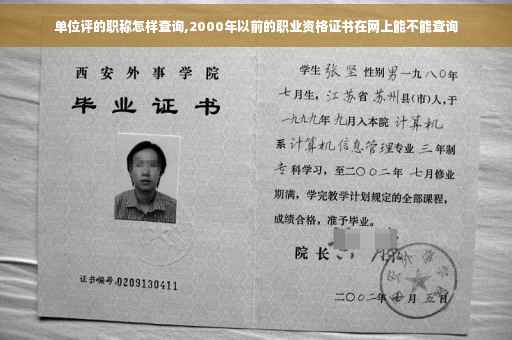 单位评的职称怎样查询,2000年以前的职业资格证书在网上能不能查询
西安外事学院
毕业证书
证书编号:0209130411
学生 张坚 性别 男 一九八〇年
七月生, 江苏省 苏州县(市)人,于
一九九九年 九月入本院 计算机
系 计算机信息管理专业 三 年制
专 科学习, 至二〇〇二年 七月修业
期满, 学完教学计划规定的全部课程,
成绩合格, 准予毕业。
院 长
二〇〇二年 月 五日